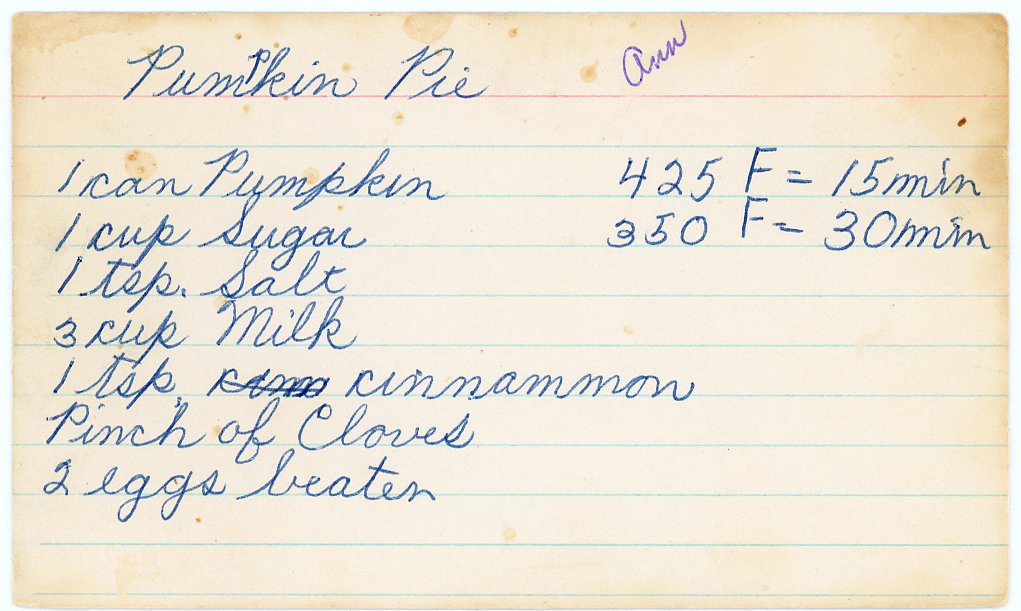 Pumpkin Pie
Ann
1 can Pumpkin 425 F = 15 min
1 cup Sugar 350 F = 30 min
1 tsp. Salt
3 cup Milk
1 tsp. cinnammon
Pinch of Cloves
2 eggs beaten